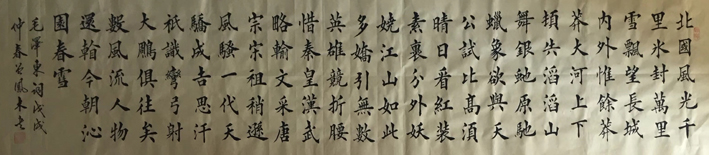 北國風光千
里氷封萬里
雪飄望長城
內外惟餘莽
莽大河上下
頓失滔滔山
舞銀虵原馳
蠟象欲與天
公試比高須
晴日看紅裝
素裹分外妖
嬈江山如此
多嬌引無數
英雄競折腰
惜秦皇漢武
略輸文采唐
宗宋祖稍遜
風騷一代天
驕成吉思汗
祇識彎弓射
大鵬俱往矣
數風流人物
還翰今朝沁
園春雪
毛澤東詞戊戌
仲春